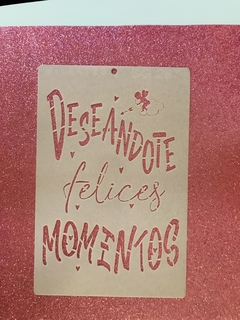 DESEANDOTE
felices
MOMENTOS